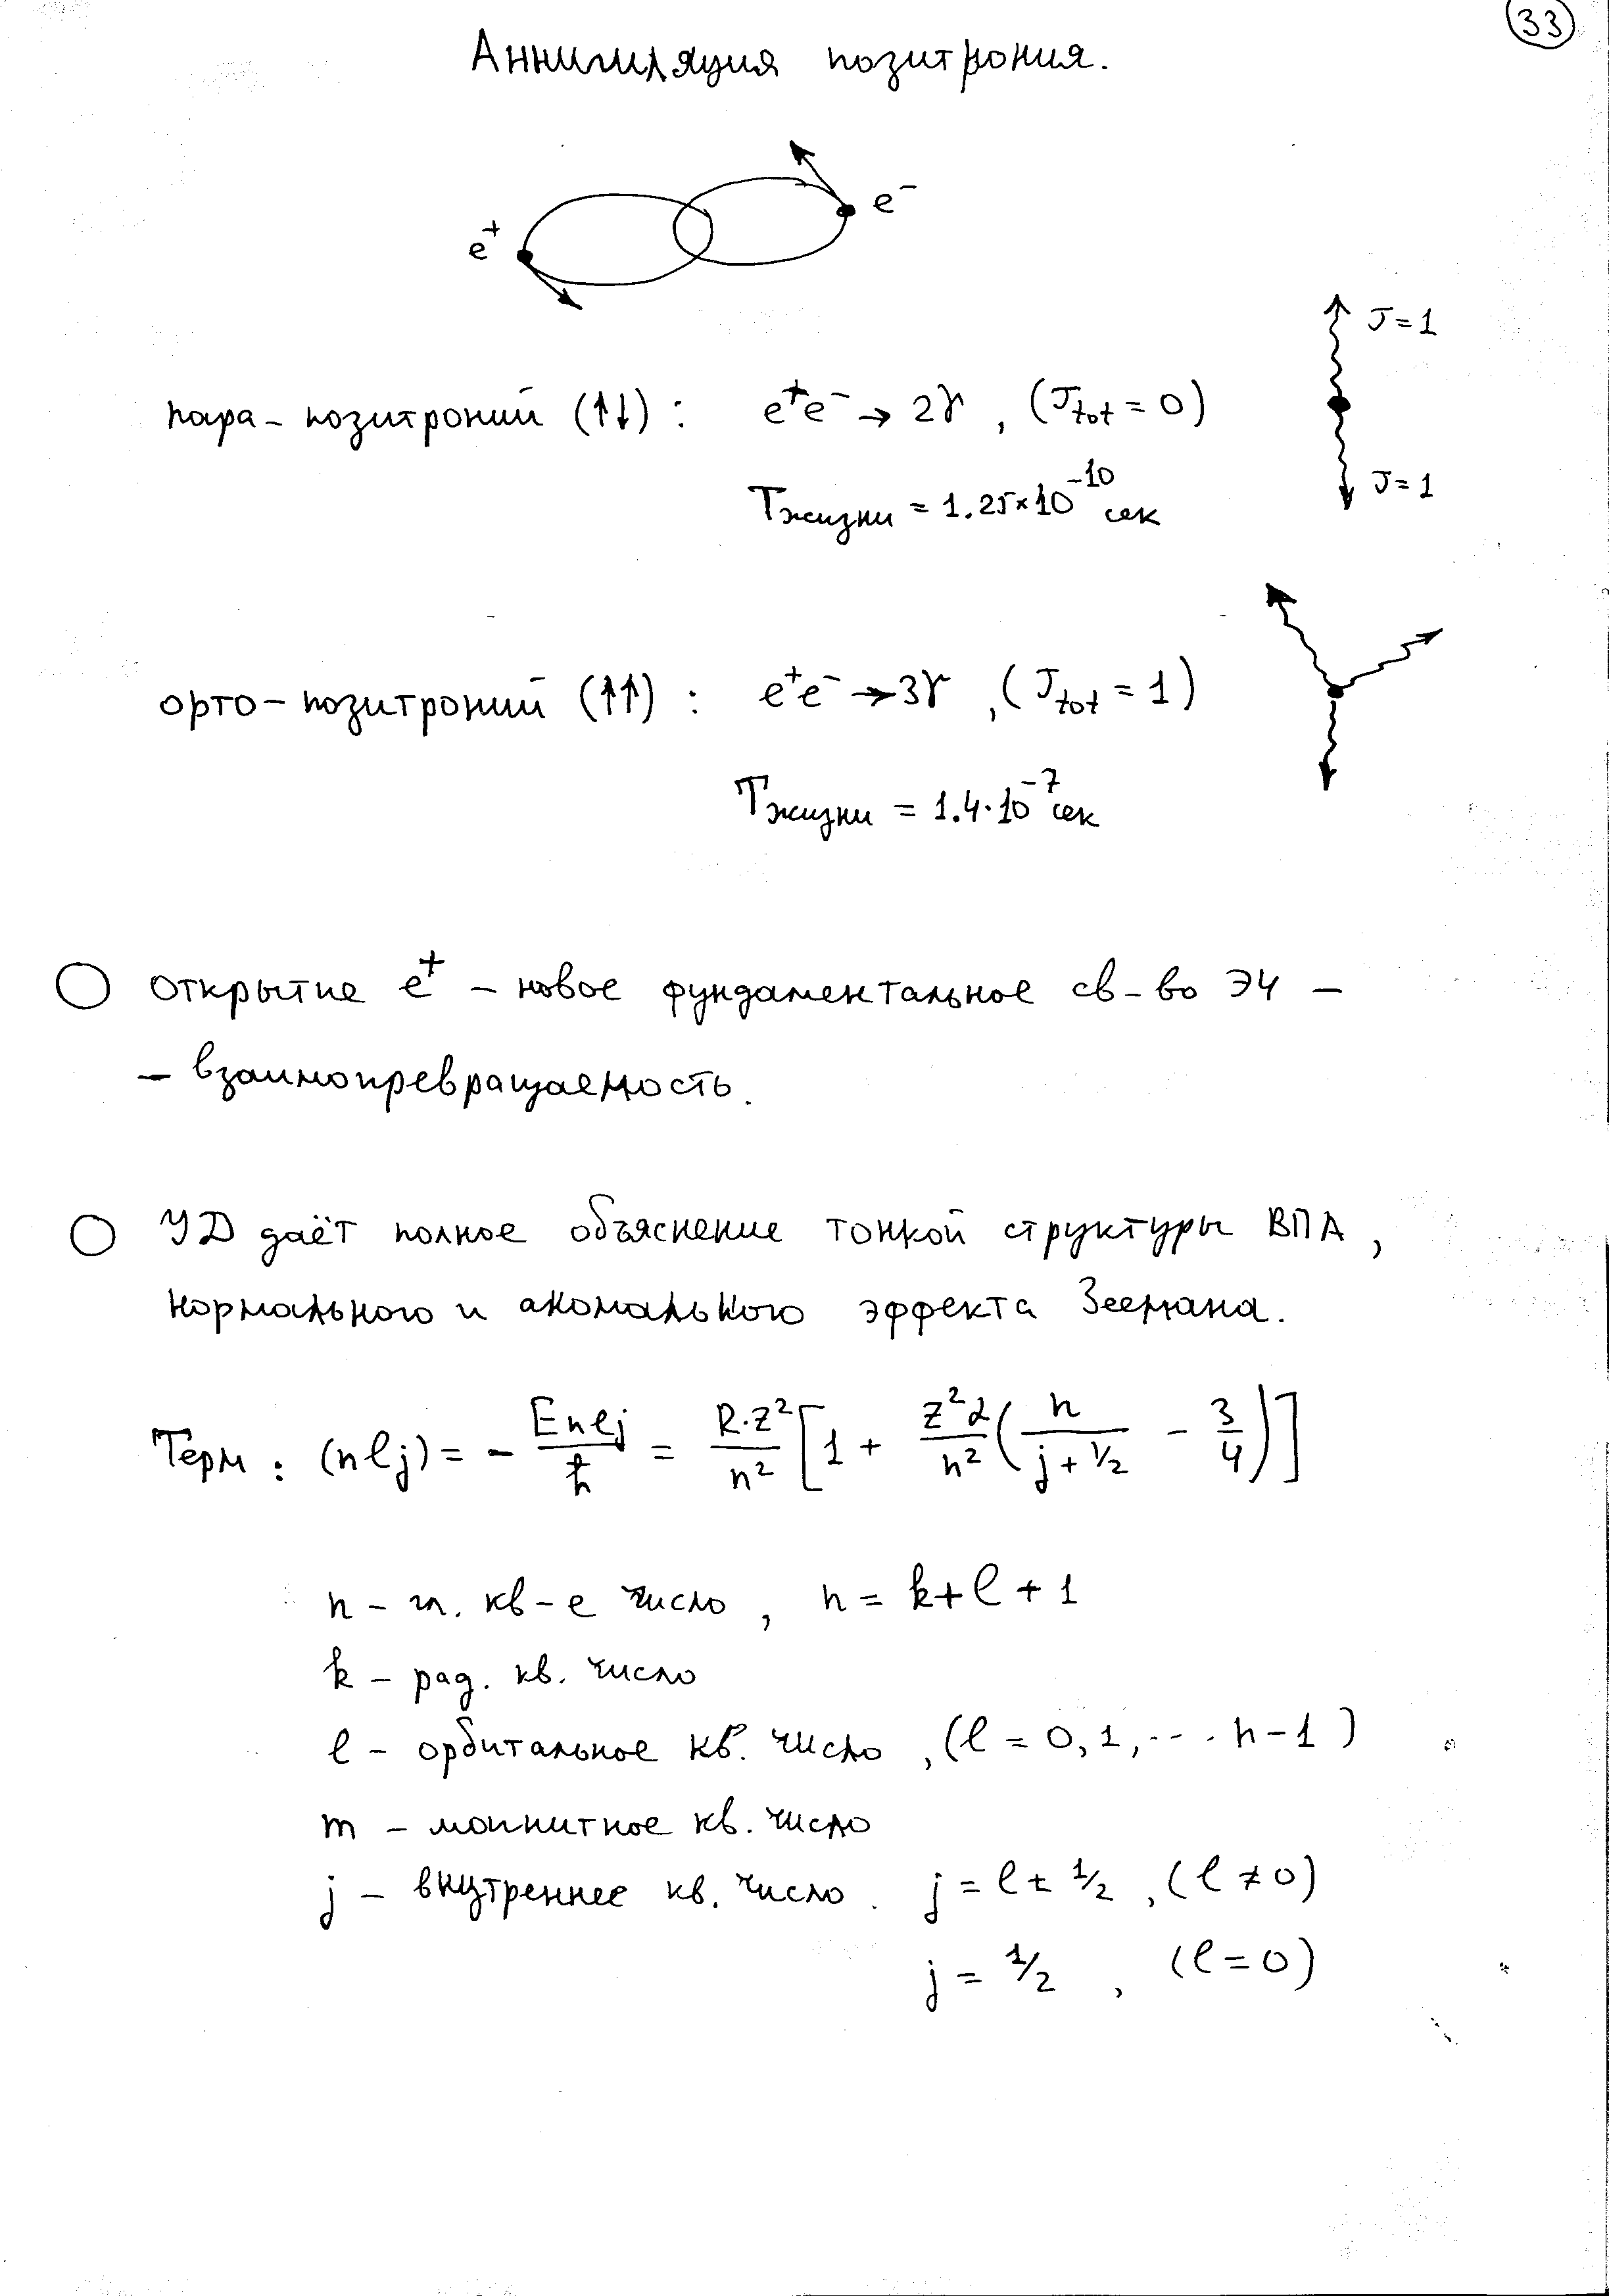 33
Аннигиляция позитрония.
e⁺ e⁻
J=1
пара-позитроний (↑↓) : e⁺e⁻ → 2γ , (J_tot = 0)
J=1
T_жизни = 1.25×10⁻¹⁰ сек
орто-позитроний (↑↑) : e⁺e⁻ → 3γ , (J_tot = 1)
T_жизни = 1.4·10⁻⁷ сек
Открытие e⁺ – новое фундаментальное св-во ЭЧ –
– взаимопревращаемость.
УД даёт полное объяснение тонкой структуры ВПА,
нормального и аномального эффекта Зеемана.
Терм : (nℓj) = - Enℓj/ħ = R·Z²/n² [1 + Z²α/n² (n/(j + 1/2) - 3/4)]
n – гл. кв-е число , n = k+ℓ+1
k – рад. кв. число
ℓ – орбитальное кв. число , (ℓ = 0,1,... n-1)
m – магнитное кв. число
j – внутреннее кв. число. j = ℓ ± 1/2 , (ℓ ≠ 0)
j = 1/2 , (ℓ = 0)